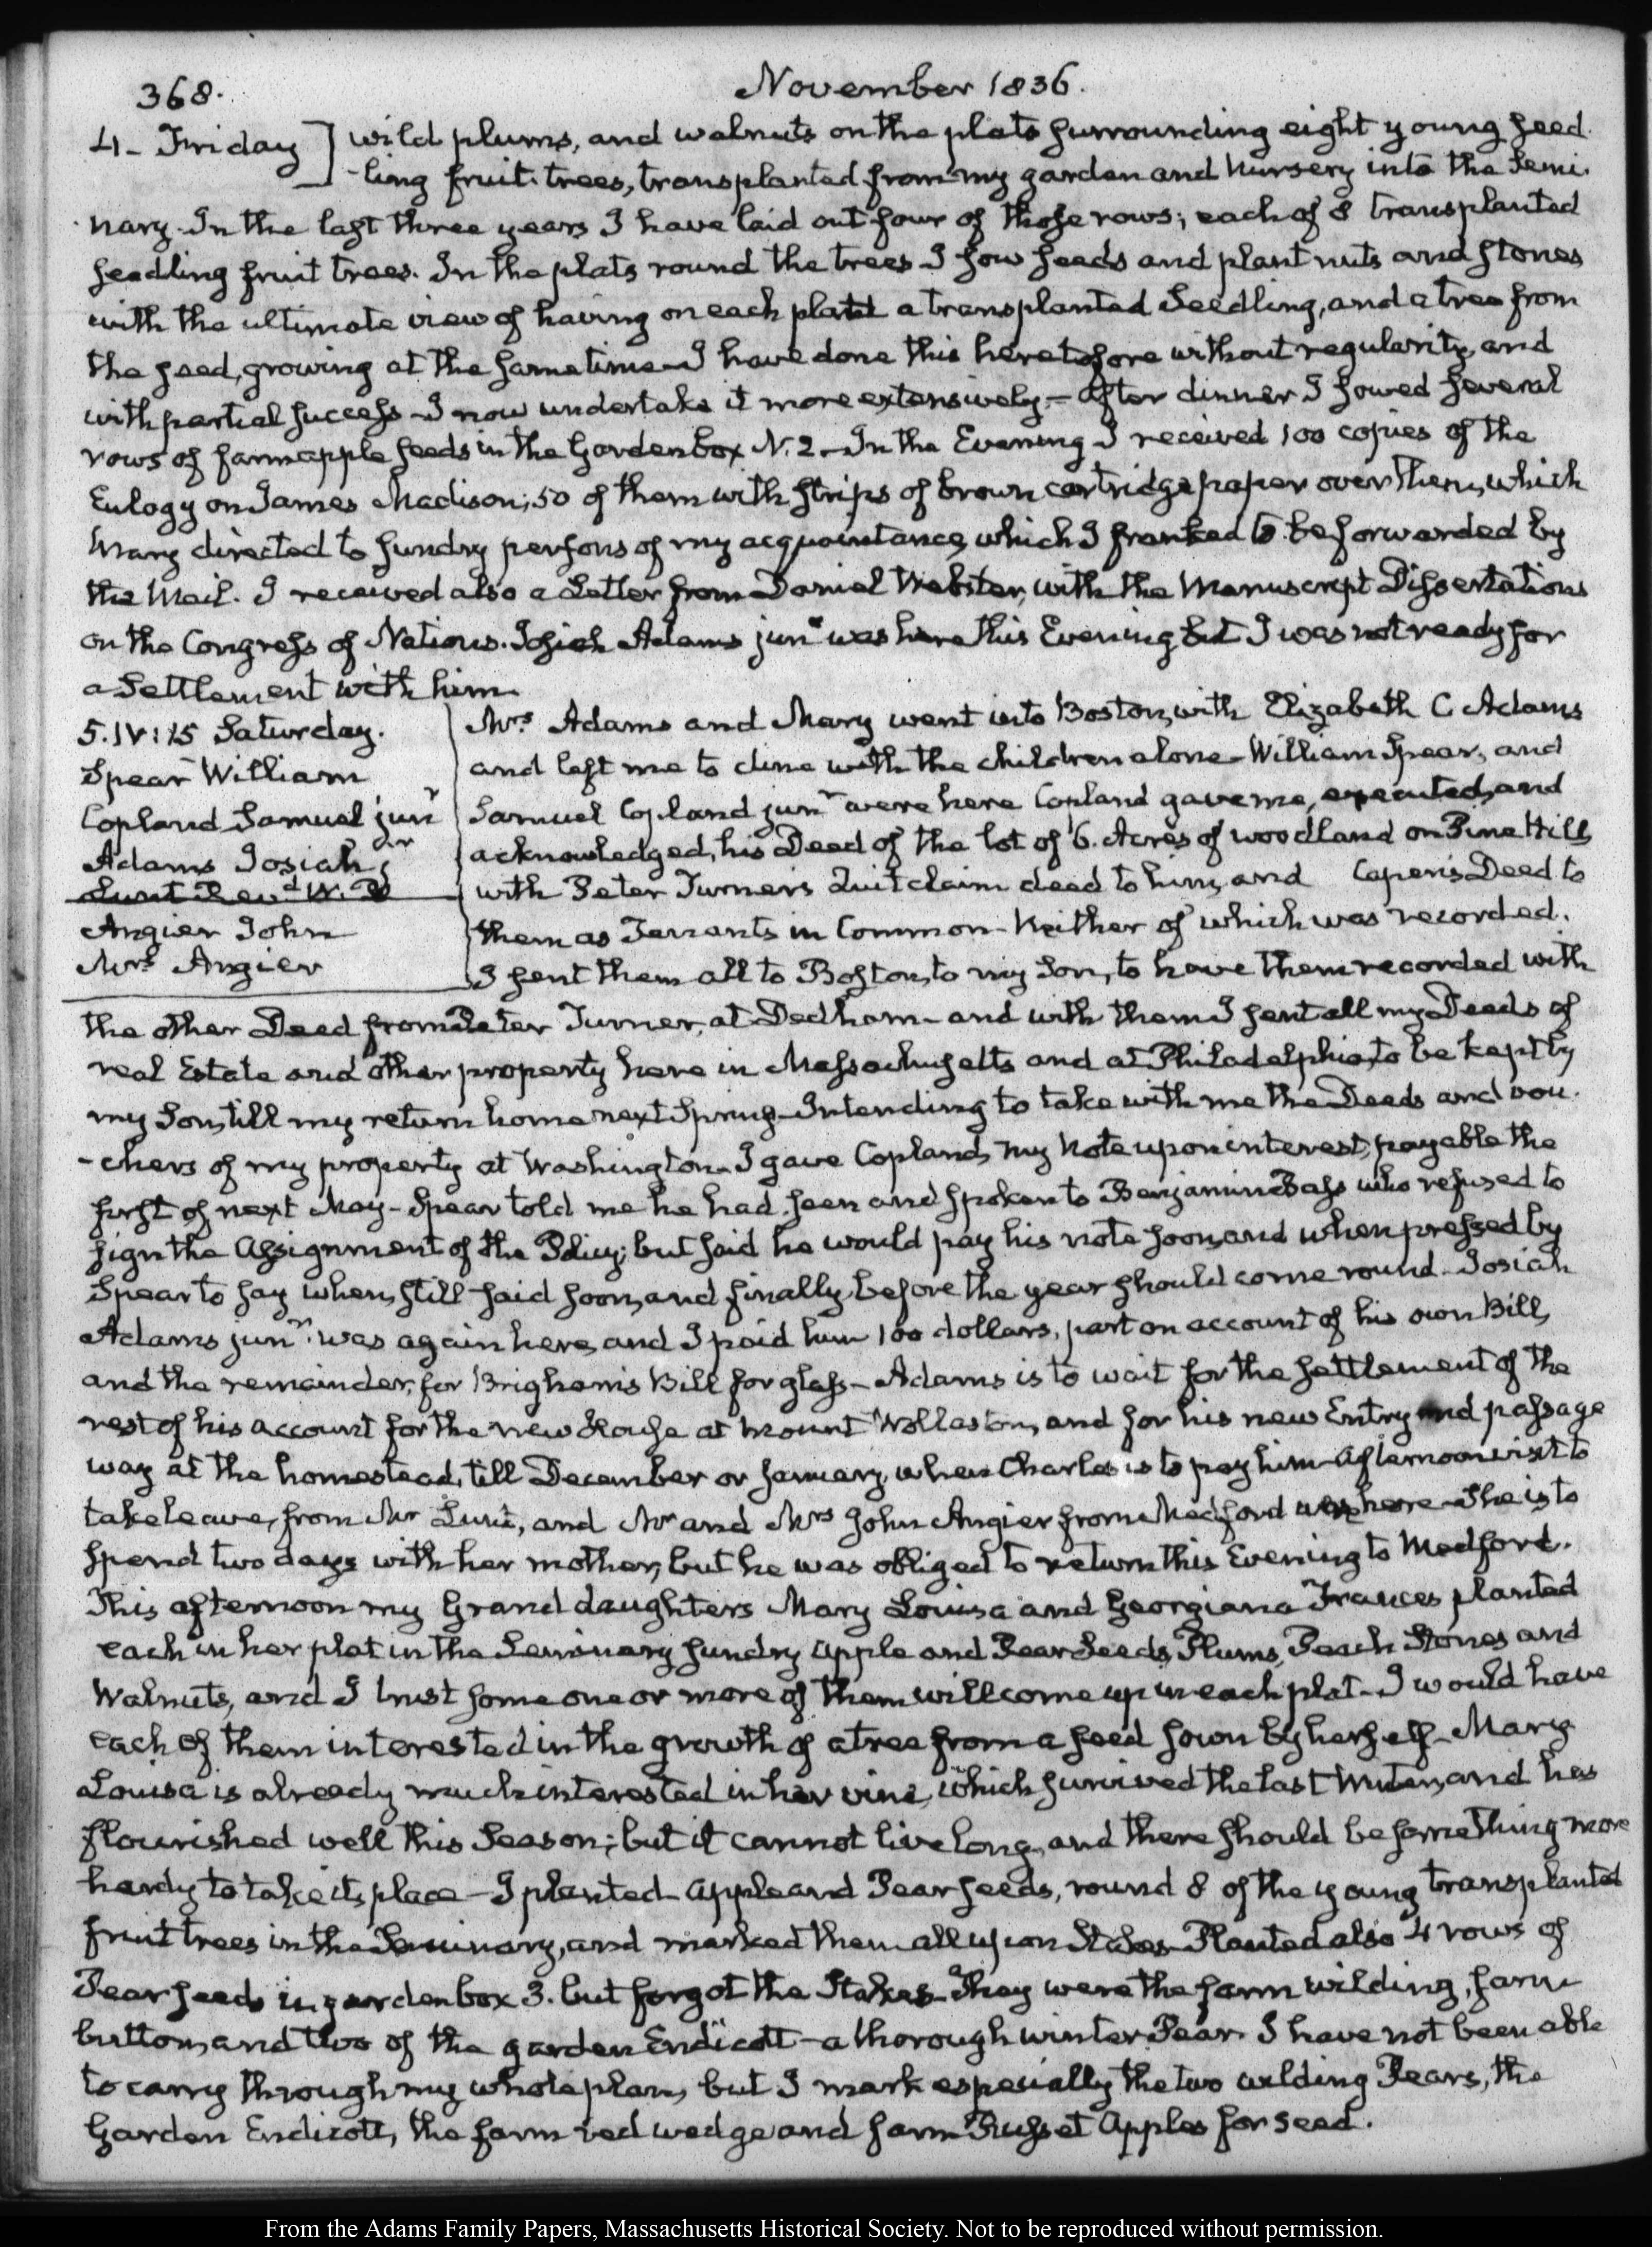 368.
November 1836.
4- Friday ] wild plums, and walnuts on the plats surrounding eight young seed
-ling fruit trees, transplanted from my garden and Nursery into the Semi-
nary. In the last three years I have laid out four of those rows; each of 8 transplanted
seedling fruit trees. In the plats round the trees I sow seeds and plant nuts and stones
with the ultimate view of having on each plat a transplanted Seedling, and a tree from
the seed, growing at the same time- I have done this heretofore without regularity, and
with partial success- I now undertake it more extensively.- After dinner I sowed several
rows of farm apple seeds in the Garden box N. 2. In the Evening I received 100 copies of the
Eulogy on James Madison; 50 of them with strips of brown cartridge paper over them, which
Mary directed to sundry persons of my acquaintance, which I franked to be forwarded by
the Mail. I received also a Letter from Daniel Webster, with the Manuscript Dissertations
on the Congress of Nations. Josiah Adams junr was here this Evening, but I was not ready for
a Settlement with him.
5. IV:15 Saturday.
Spear William
Copland Samuel junr
Adams Josiah jr
Lunt Revd W. P
Angier John
Mrs Angier
Mrs Adams and Mary went into Boston, with Elizabeth C Adams
and left me to dine with the children alone- William Spear, and
Samuel Copland junr were here Copland gave me, executed, and
acknowledged, his Deed of the lot of 6. Acres of woodland on Pine Hill,
with Peter Turner's Quitclaim deed to him, and Capen's Deed to
them as Tenants in Common- Neither of which was recorded.
I sent them all to Boston, to my Son, to have them recorded with
the other Deed from Peter Turner, at Dedham- and with them I sent all my Deeds of
real Estate and other property here in Massachusetts and at Philadelphia, to be kept by
my Son, till my return home next Spring- Intending to take with me the Deeds and vou-
-chers of my property at Washington- I gave Copland, my Note upon interest, payable the
first of next May- Spear told me he had seen and spoken to Benjamin Bass who refused to
sign the Assignment of the Policy; but said he would pay his note soon, and when pressed by
Spear to say when, still said soon, and finally before the year should come round- Josiah
Adams junr. was again here, and I paid him 100 dollars, part on account of his own Bill,
and the remainder, for Brigham's Bill for glass- Adams is to wait for the settlement of the
rest of his account for the new House at Mount Wollaston, and for his new Entry and passage
way at the homestead, till December or January, when Charles is to pay him- Afternoon visit to
take leave, from Mr Lunt, and Mr and Mrs John Angier from Medford were here- She is to
spend two days with her mother, but he was obliged to return this Evening to Medford.
This afternoon my Grand daughters Mary Louisa and Georgiana Frances planted
each in her plat in the Seminary sundry apple and Pear Seeds, Plums, Peach Stones and
Walnuts, and I trust some one or more of them will come up in each plat- I would have
each of them interested in the growth of a tree from a seed sown by herself- Mary
Louisa is already much interested in her vine, which survived the last Winter, and has
flourished well this Season; but it cannot live long, and there should be something more
hardy to take its place- I planted apple and Pear seeds, round 8 of the young transplanted
fruit trees in the Seminary, and marked them all upon Stakes- Planted also 4 rows of
Pear seeds in garden box 3. but forgot the Stakes- They were the farm wilding, farm
button, and two of the garden Endicott- a thorough winter Pear. I have not been able
to carry through my whole plan, but I mark especially the two wilding Pears, the
Garden Endicott, the farm red wedge and farm Russet Apples for seed.
From the Adams Family Papers, Massachusetts Historical Society. Not to be reproduced without permission.